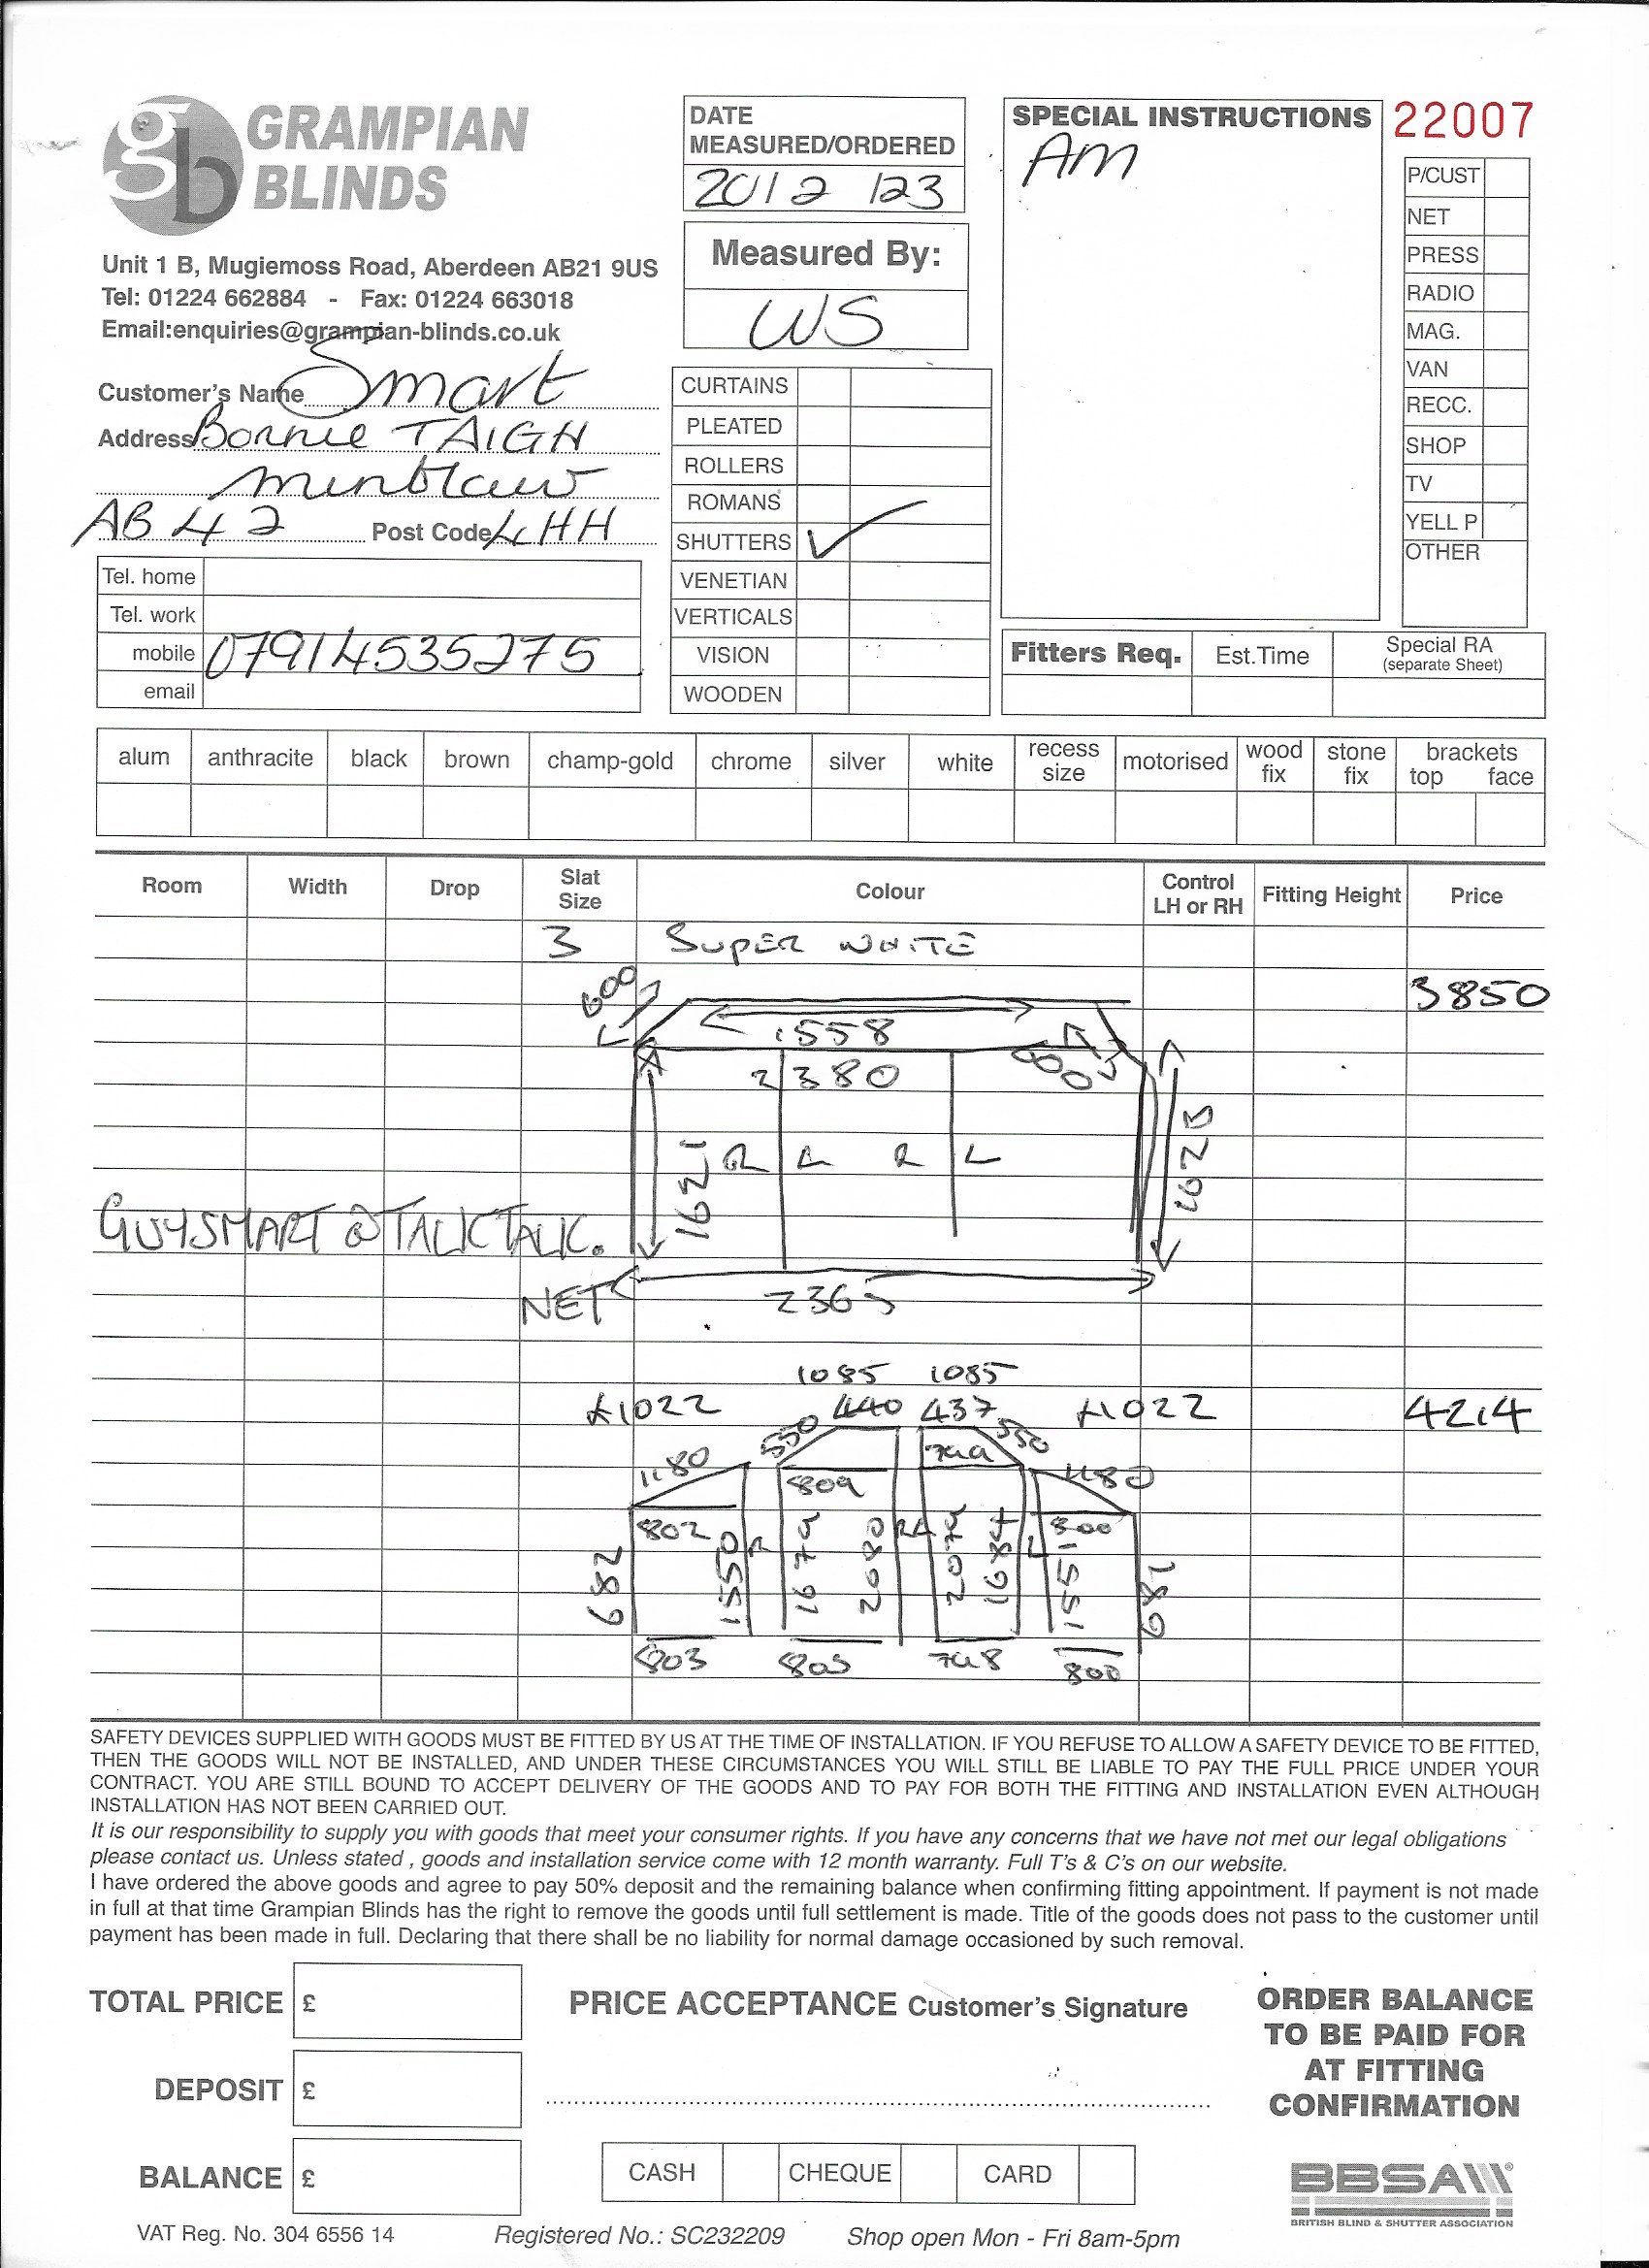 GRAMPIAN
BLINDS
Unit 1 B, Mugiemoss Road, Aberdeen AB21 9US
Tel: 01224 662884 - Fax: 01224 663018
Email:enquiries@grampian-blinds.co.uk
Customer's Name Smart
Address Bonnie TAIGH
mintlaw
AB42 Post Code 4HH
Tel. home
Tel. work
mobile 07914535275
email
DATE
MEASURED/ORDERED
2012 123
Measured By:
WS
CURTAINS
PLEATED
ROLLERS
ROMANS
SHUTTERS ✓
VENETIAN
VERTICALS
VISION
WOODEN
SPECIAL INSTRUCTIONS
AM
22007
P/CUST
NET
PRESS
RADIO
MAG.
VAN
RECC.
SHOP
TV
YELL P
OTHER
Fitters Req. Est.Time Special RA
(separate Sheet)
alum anthracite black brown champ-gold chrome silver white recess size motorised wood fix stone fix brackets top face
Room Width Drop Slat Size Colour Control LH or RH Fitting Height Price
3 SUPER WHITE
3850
600
1558
600
2380
1621 R L R L 1625
GUYSMART @ TALKTALK.
NET
2365
1085 1085
£1022 440 437 £1022 4214
1180 550 550 1180
809 749
802 800
682 1550 R 1679 2080 RL 2079 1684 L 1551 681
803 805 748 800
SAFETY DEVICES SUPPLIED WITH GOODS MUST BE FITTED BY US AT THE TIME OF INSTALLATION. IF YOU REFUSE TO ALLOW A SAFETY DEVICE TO BE FITTED,
THEN THE GOODS WILL NOT BE INSTALLED, AND UNDER THESE CIRCUMSTANCES YOU WILL STILL BE LIABLE TO PAY THE FULL PRICE UNDER YOUR
CONTRACT. YOU ARE STILL BOUND TO ACCEPT DELIVERY OF THE GOODS AND TO PAY FOR BOTH THE FITTING AND INSTALLATION EVEN ALTHOUGH
INSTALLATION HAS NOT BEEN CARRIED OUT.
It is our responsibility to supply you with goods that meet your consumer rights. If you have any concerns that we have not met our legal obligations
please contact us. Unless stated , goods and installation service come with 12 month warranty. Full T's & C's on our website.
I have ordered the above goods and agree to pay 50% deposit and the remaining balance when confirming fitting appointment. If payment is not made
in full at that time Grampian Blinds has the right to remove the goods until full settlement is made. Title of the goods does not pass to the customer until
payment has been made in full. Declaring that there shall be no liability for normal damage occasioned by such removal.
TOTAL PRICE £
DEPOSIT £
BALANCE £
PRICE ACCEPTANCE Customer's Signature
CASH CHEQUE CARD
ORDER BALANCE
TO BE PAID FOR
AT FITTING
CONFIRMATION
BBSA
BRITISH BLIND & SHUTTER ASSOCIATION
VAT Reg. No. 304 6556 14 Registered No.: SC232209 Shop open Mon - Fri 8am-5pm